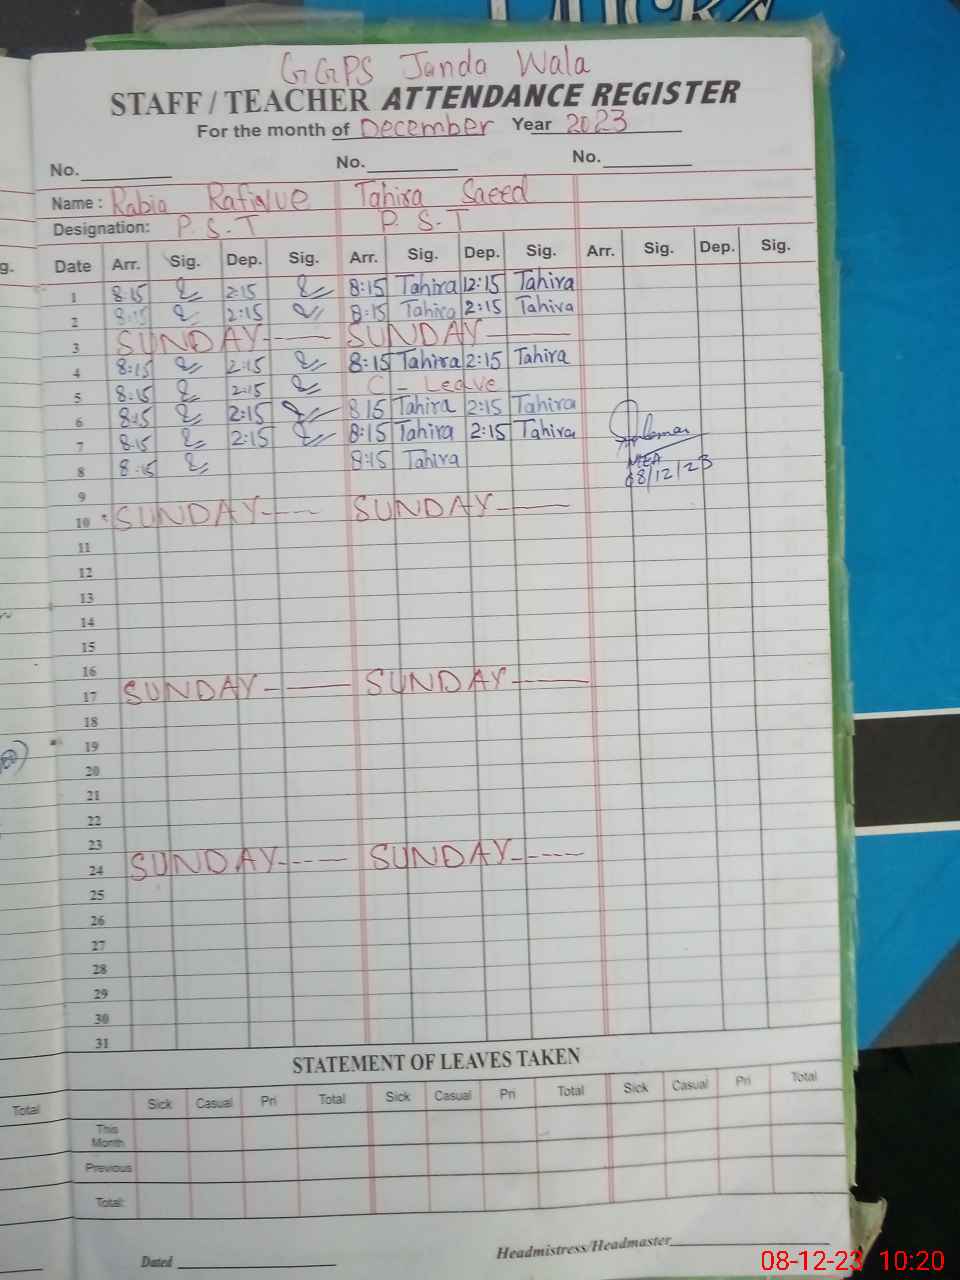 GGPS Janda Wala
STAFF / TEACHER ATTENDANCE REGISTER
For the month of December Year 2023
No. No. No.
Name : Rabia Rafique Tahira Saeed
Designation: P.S.T P.S.T
g. Date Arr. Sig. Dep. Sig. Arr. Sig. Dep. Sig. Arr. Sig. Dep. Sig.
1 8:15 2:15 8:15 Tahira 12:15 Tahira
2 8:15 2:15 8:15 Tahira 2:15 Tahira
3 SUNDAY SUNDAY
4 8:15 2:15 8:15 Tahira 2:15 Tahira
5 8:15 2:15 C - Leave
6 8:15 2:15 8 15 Tahira 2:15 Tahira
7 8:15 2:15 8:15 Tahira 2:15 Tahira
8 8:15 8:15 Tahira
MEA
08/12/23
9
10 SUNDAY SUNDAY
11
12
13
14
15
16
17 SUNDAY SUNDAY
18
19
20
21
22
23
24 SUNDAY SUNDAY
25
26
27
28
29
30
31
STATEMENT OF LEAVES TAKEN
Total Sick Casual Pri Total Sick Casual Pri Total Sick Casual Pri Total
This Month
Previous
Total:
Dated Headmistress/Headmaster
08-12-23 10:20